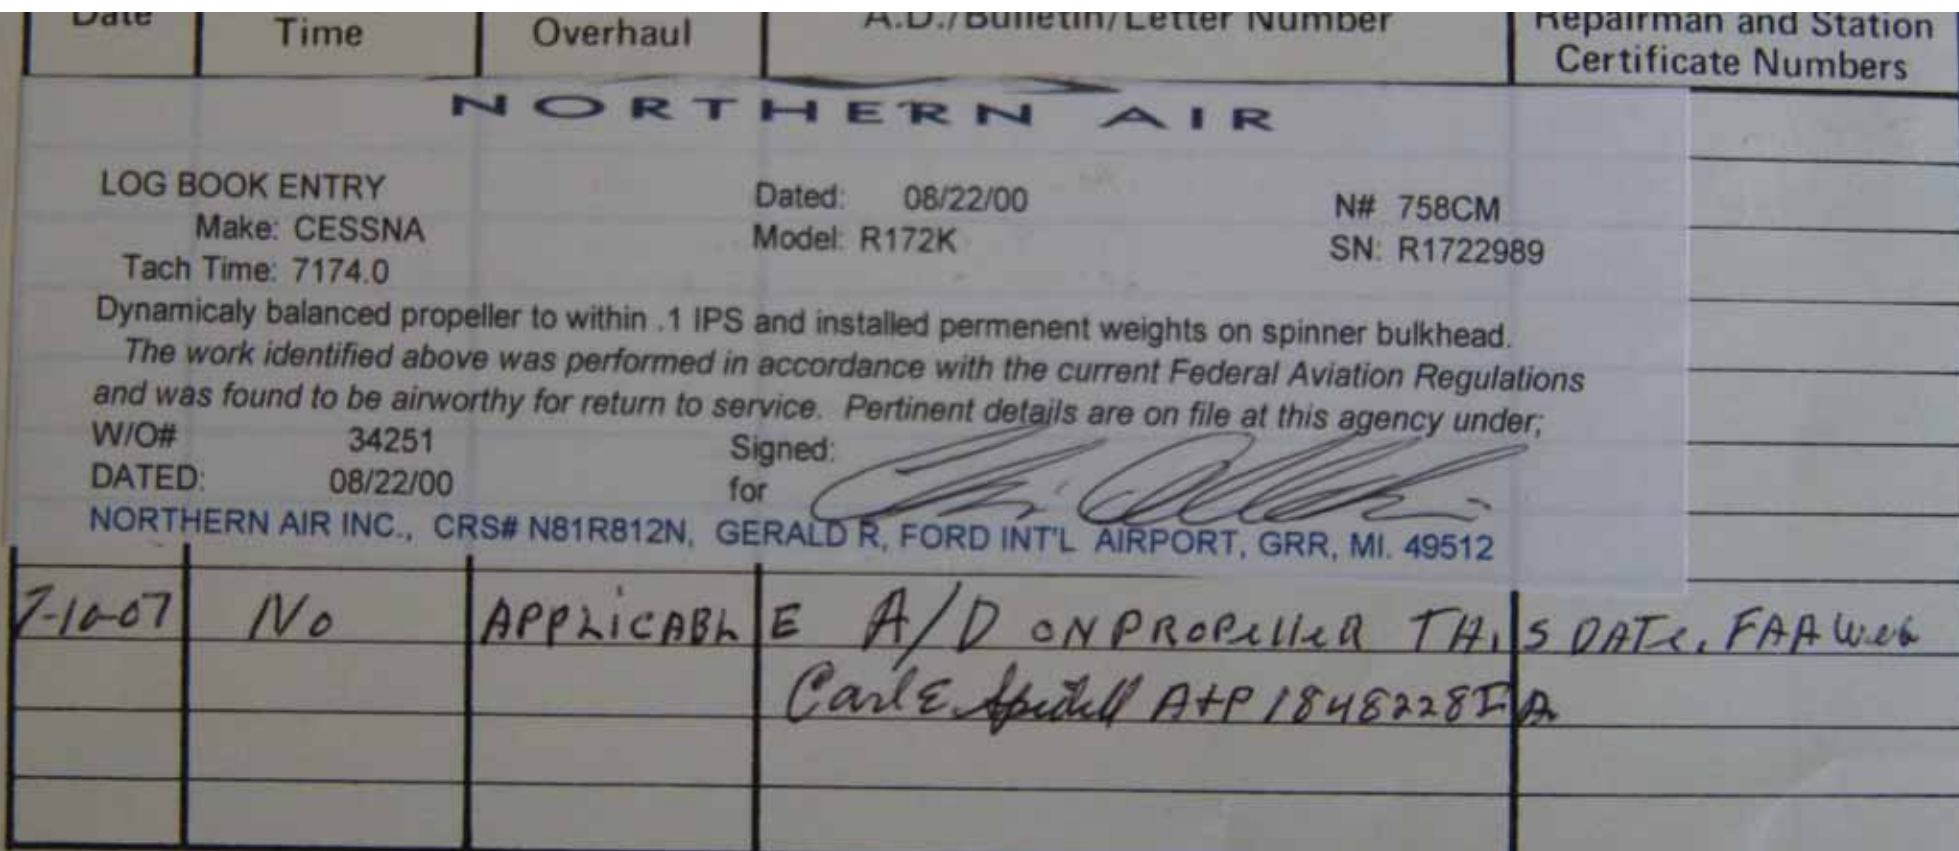 Date Time Overhaul A.D./Bulletin/Letter Number Repairman and Station
Certificate Numbers
NORTHERN AIR
LOG BOOK ENTRY Dated: 08/22/00 N# 758CM
Make: CESSNA Model: R172K SN: R1722989
Tach Time: 7174.0
Dynamicaly balanced propeller to within .1 IPS and installed permenent weights on spinner bulkhead.
The work identified above was performed in accordance with the current Federal Aviation Regulations
and was found to be airworthy for return to service. Pertinent details are on file at this agency under;
W/O# 34251 Signed:
DATED: 08/22/00 for
NORTHERN AIR INC., CRS# N81R812N, GERALD R, FORD INT'L AIRPORT, GRR, MI. 49512
7-10-07 No APPLICABLE A/D ON PROPELLER THIS DATE, FAA Web
Carl E A+P 1848228IA